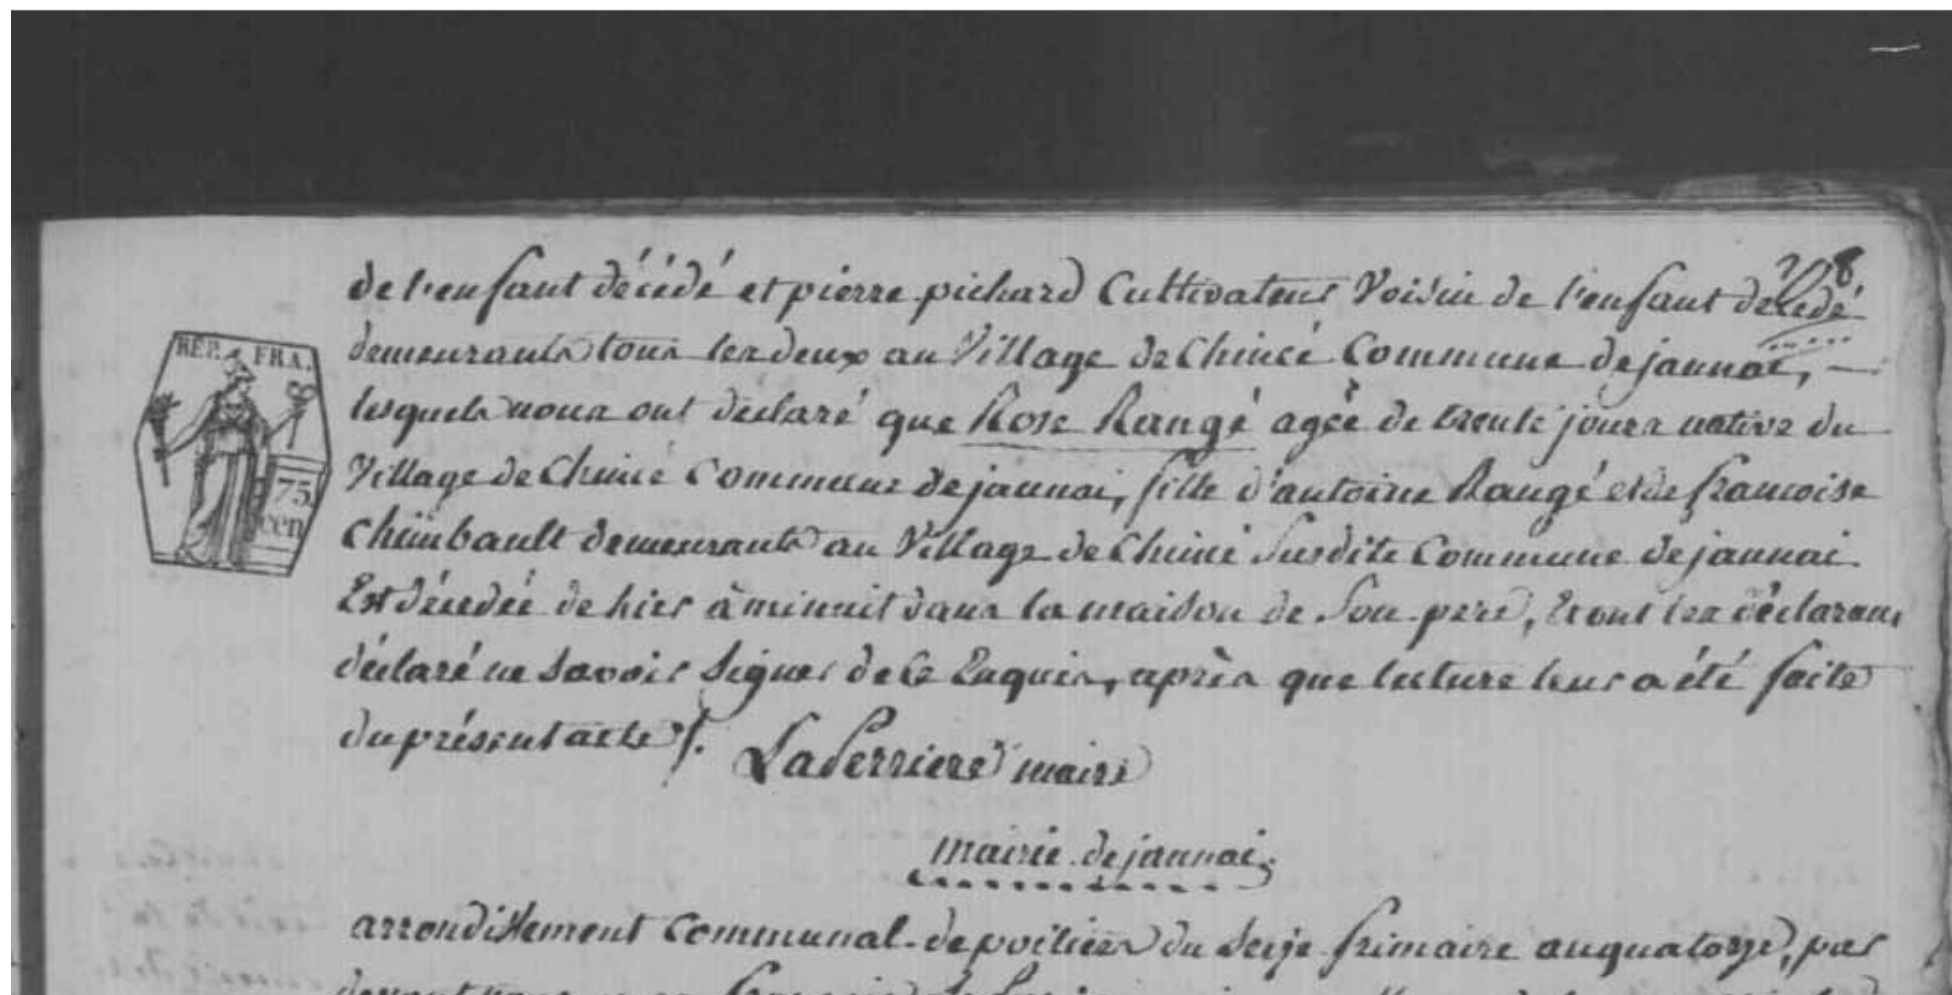 28
de l'enfant décédé et pierre pichard Cultivateur Voisin de l'enfant decedé
demeurants tous les deux au Village de Chincé Commune de jaunai,
lesquels nous ont déclaré que Rose Rangé agée de trente jours native du
Village de Chincé Commune de jaunai, fille d'antoine Rangé et de francoise
Chimbault demeurants au Village de Chincé Susdite Commune de jaunai.
Est décedée de hier à minuit dans la maison de Son pere, Et ont les déclarans
déclaré ne Savoir Signer de ce Enquis, après que lecture leur a été faite
du présent acte /.
LaPerriere maire
mairie de jaunai.
arrondissement Communal de poitiers du Seize frimaire an quatorze, par
REP. FRA.
75
cen